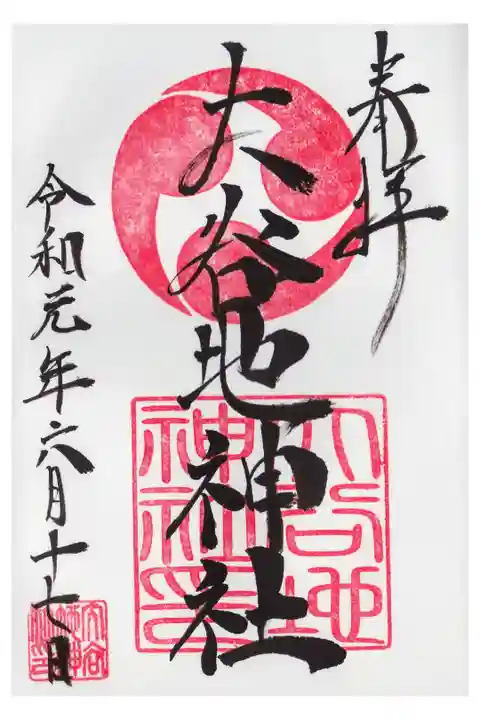 奉拝
大谷地神社
大谷地
神社印
令和元年六月十七日